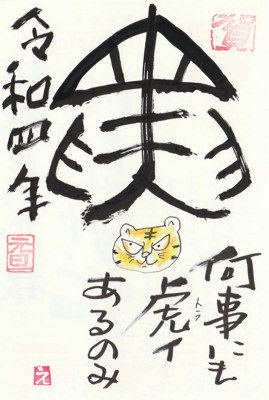 寅
賀
令和四年
何事にも
虎イ
トラ
あるのみ
え